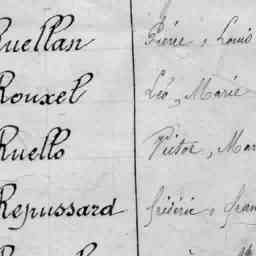 Ruellan Pierre, Louis
Rouxel Léo, Marie
Ruello Victor, Mar
Repussard frédéric, fran